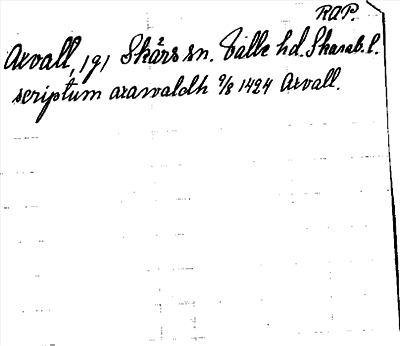 RAP.
Arvall, 1g1 Skärs sn. Valle hd. Skarab.l.
scriptum arawaldh 9/8 1424 Arvall.